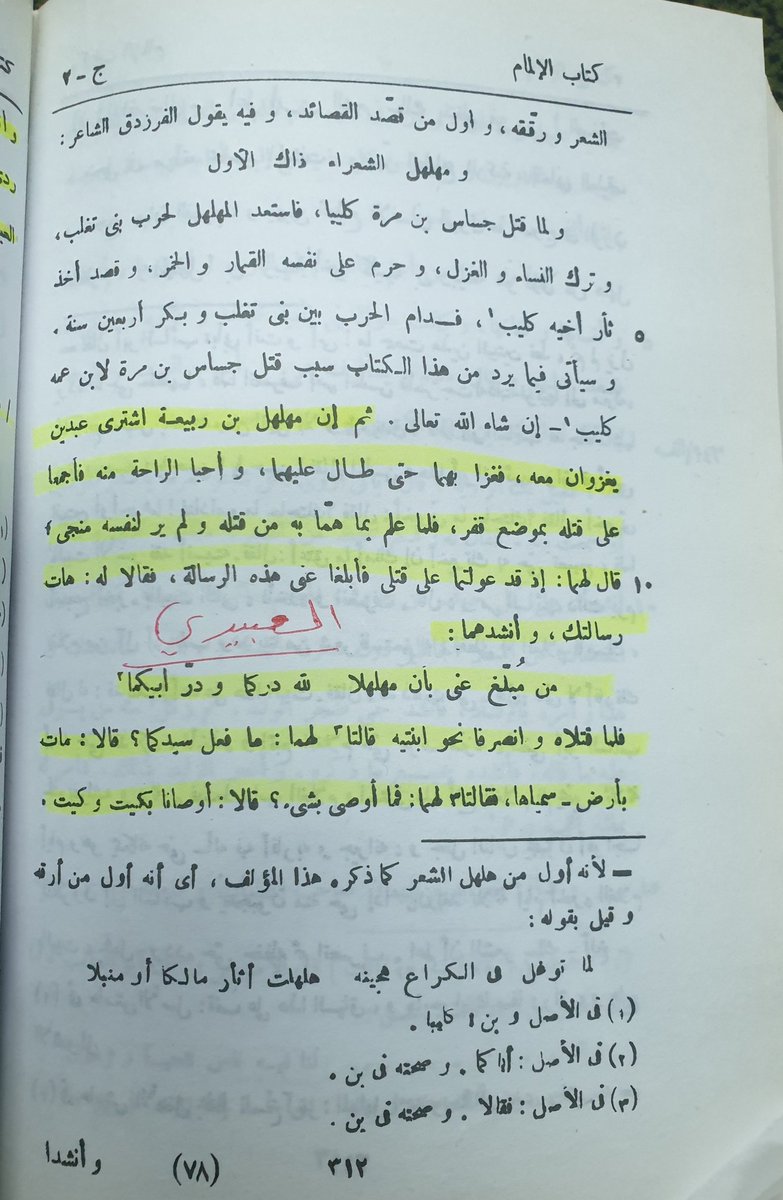 كتاب الإلمام ج - ٢
الشعر و رقّقه، و اول من قصّد القصائد، و فيه يقول الفرزدق الشاعر:
و مهلهل الشعراء ذاك الأول
و لما قتل جساس بن مرة كليبا، فاستعد المهلهل لحرب بنى تغلب،
و ترك النساء و الغزل، و حرم على نفسه القمار و الخمر، و قصد أخذ
٥ ثأر أخيه كليب١، فـدام الحرب بين بنى تغلب و بـكر أربعين سنة.
و سيأتى فيما يرد من هذا الـكتاب سبب قتل جساس بن مرة لابن عمه
كليب١ - إن شاء الله تعالى. ثم إن مهلهل بن ربيعـة اشترى عبدين
يغزوان معه، فغزا بهما حتى طـال عليهما، و أحبا الراحة منه فأجمعا
على قتله بموضع قفر، فلما علم بما همّا به من قتله و لم ير لنفسه منجى؛
١٠ قال لهما: إذ قد عولتما على قتلى فأبلغا عنى هذه الرسالة، فقالا له: هات
رسالتك، و أنشدهما:
العبيدي
من مُبلّغ عنى بأن مهلهلا لله دركما و درّ أبيكما٢
فلما قتلاه و انصرفا نحو ابنتيه قالتا٣ لهما: ما فعل سيدكما؟ قالا: مات
بأرض - سمياها، فقالتا٣ لهما: فما أوصى بشىء؟ قالا: أوصانا بكيت و كيت.
= لأنه أول من هلهل الشعر كما ذكره هذا المؤلف، أى أنه أول من أرقه
و قيل بقوله:
لما توغل فى الكراع هجينه هلهلت أثأر مالكا أو صنبلا
(١) فى الأصل و بن: كليبا.
(٢) فى الأصل: أباكما. و صحته فى بن.
(٣) فى الأصل: فقالا. و صحته فى بن.
٣١٢ (٧٨) و أنشدا